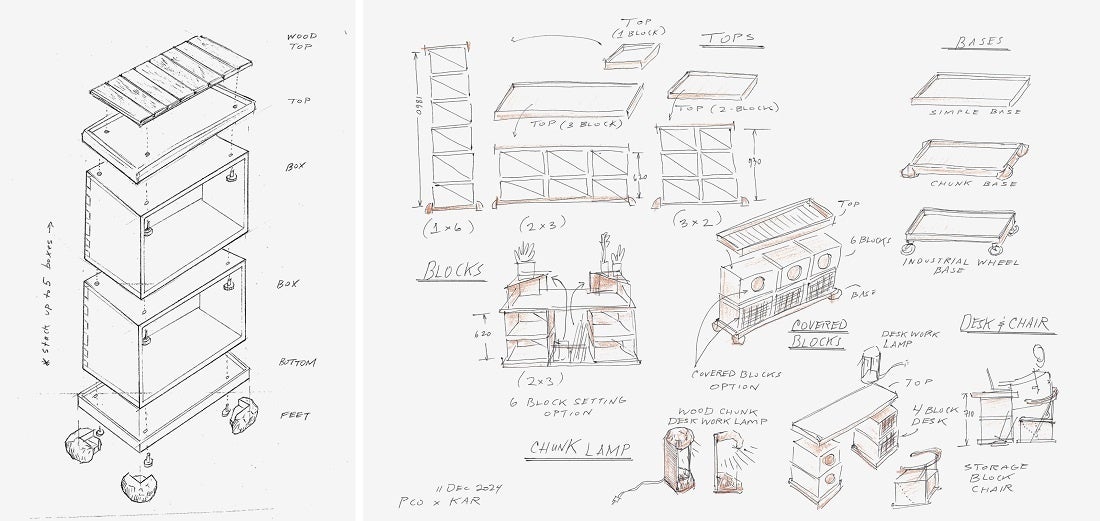 WOOD
TOP
TOP
BOX
* stack up to 5 boxes →
BOX
BOTTOM
FEET
TOP
(1 BLOCK)
TOPS
BASES
1860
TOP (3 BLOCK)
TOP (2-BLOCK)
SIMPLE BASE
620
CHUNK BASE
(1x6)
(2x3)
(3x2)
TOP
6 BLOCKS
INDUSTRIAL WHEEL
BASE
BLOCKS
BASE
620
COVERED
BLOCKS
DESK & CHAIR
DESK WORK
LAMP
(2x3)
COVERED BLOCKS
OPTION
TOP
6 BLOCK SETTING
OPTION
WOOD CHUNK
DESK WORK LAMP
4 BLOCK
DESK
710
CHUNK LAMP
STORAGE
BLOCK
CHAIR
11 DEC 2024
PCO x KAR